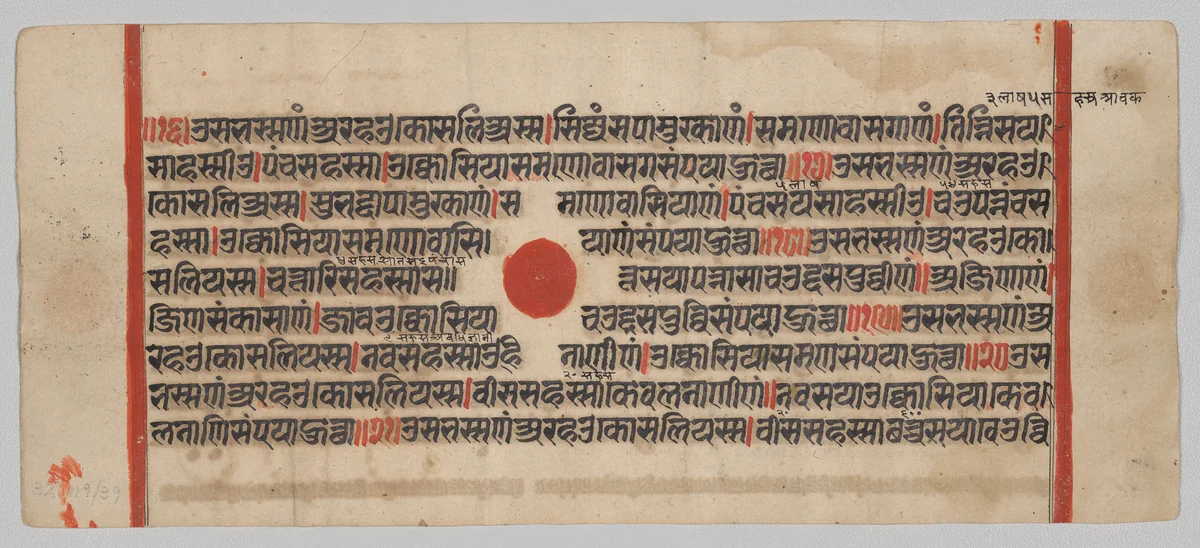 ३लाष५स हस्र श्रावक
॥१६॥उसभस्सणंअरहउकासलिअस्स।सिद्यंसपामुरकाणं।समाणोवासगाणं।तिन्निसया
साहस्सीउ।पंचसहस्सा।उक्कोसियासमणोवासगसंपयाऊत्था॥१७॥उसभस्सणंअरहउ
५लाष ५४सहस
कासलिअस्स।सुभद्दापामुरकाणं।स माणोवासियाणं।पंचसयसाहस्सीउ।चउपन्नंचस
हस्सा।उक्कोसियासमणोवासि। याणंसंपयाऊत्था॥१८॥उसभस्सणंअरहउको॥
४सहससातसइपंचास
सलियस्स।चत्तारिसहस्सासि॥ त्तसयापन्नासाचउद्दसपुव्वीणं॥अजिणाणं।
जिणसंकासाणं।जावउक्कोसिया चउद्दसपुव्विसंपयाऊत्था॥१९॥उसभस्सणंअ
९सहसअवधिज्ञानी
रहउकासलियस्स।नवसहस्साउहि नाणीणं।उक्कोसियासमणसंपयाऊत्था॥२०॥उस
२०सहस
भस्सणंअरहउकासलियस्स।वीससहस्साकेवलनाणीणं॥नवसयाउक्कोसियाकेव
लनाणिसंपयाऊत्था॥२१॥उसभस्सणंअरहउकासलियस्स।वीससहस्साबच्चसयावेउव्वि